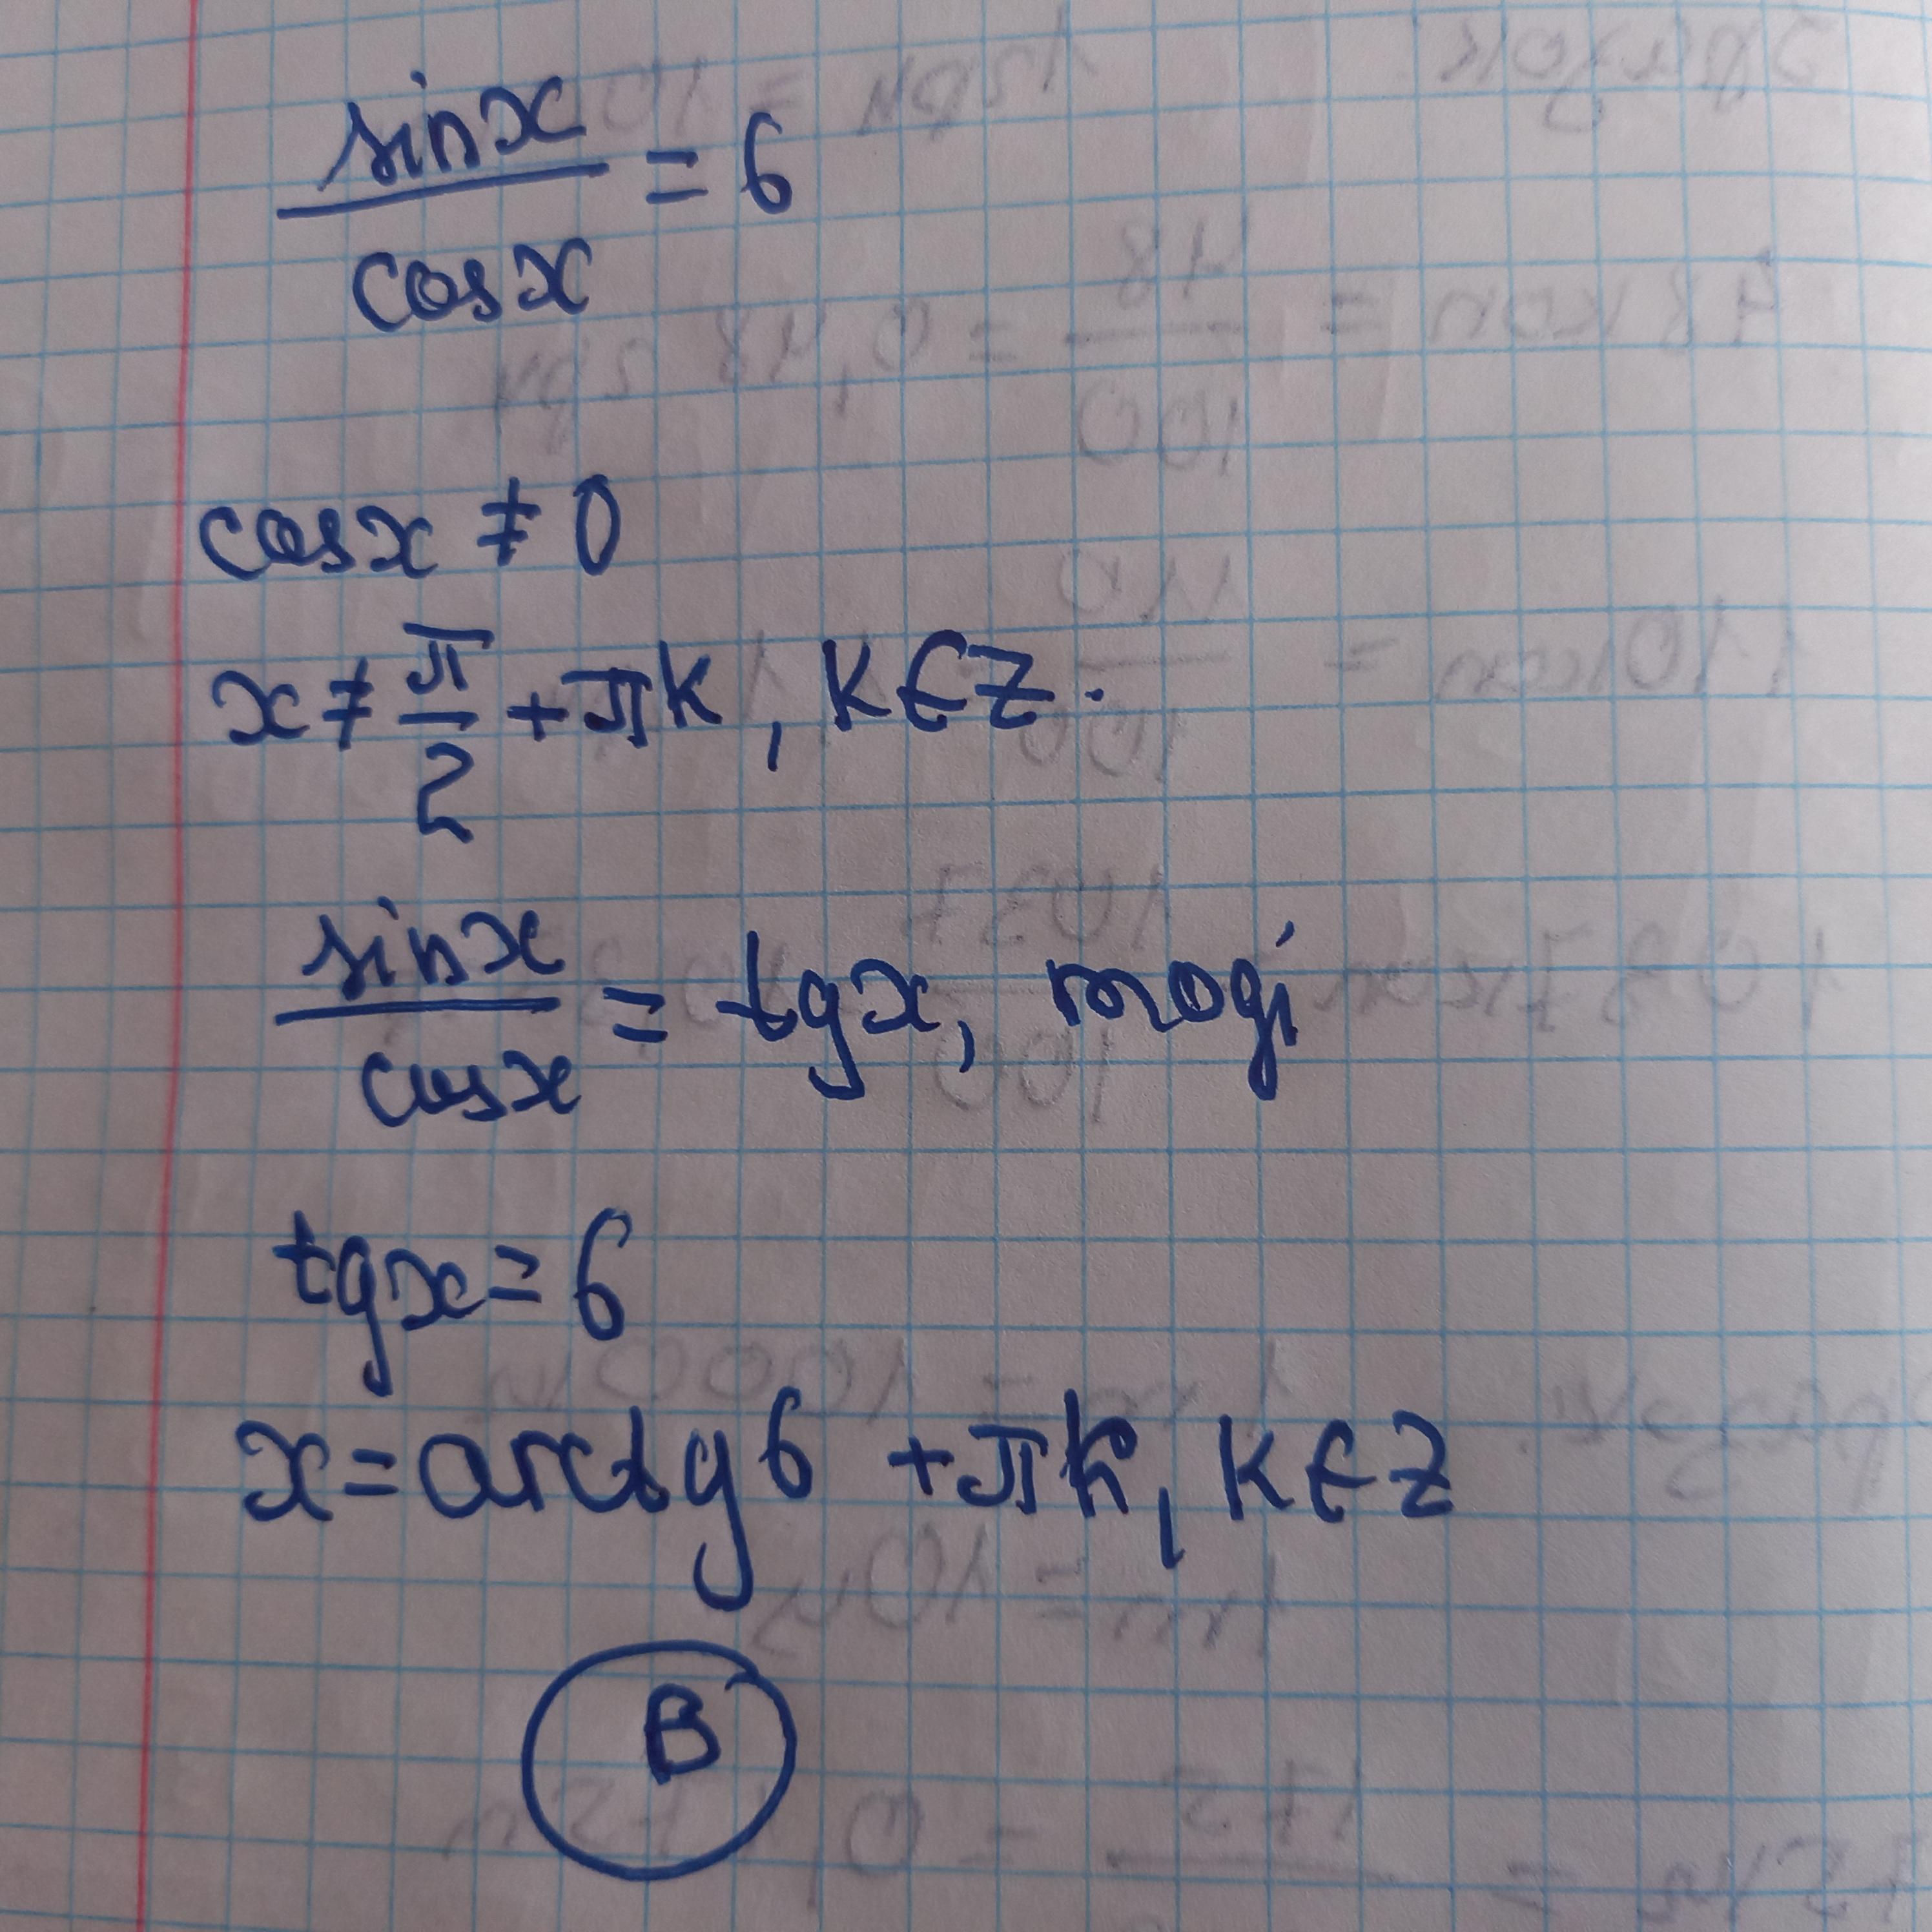 sinx/cosx = 6
cosx ≠ 0
x ≠ π/2 + πk, k∈Z.
sinx/cosx = tgx, тоді
tgx = 6
x = arctg6 + πk, k∈Z
В